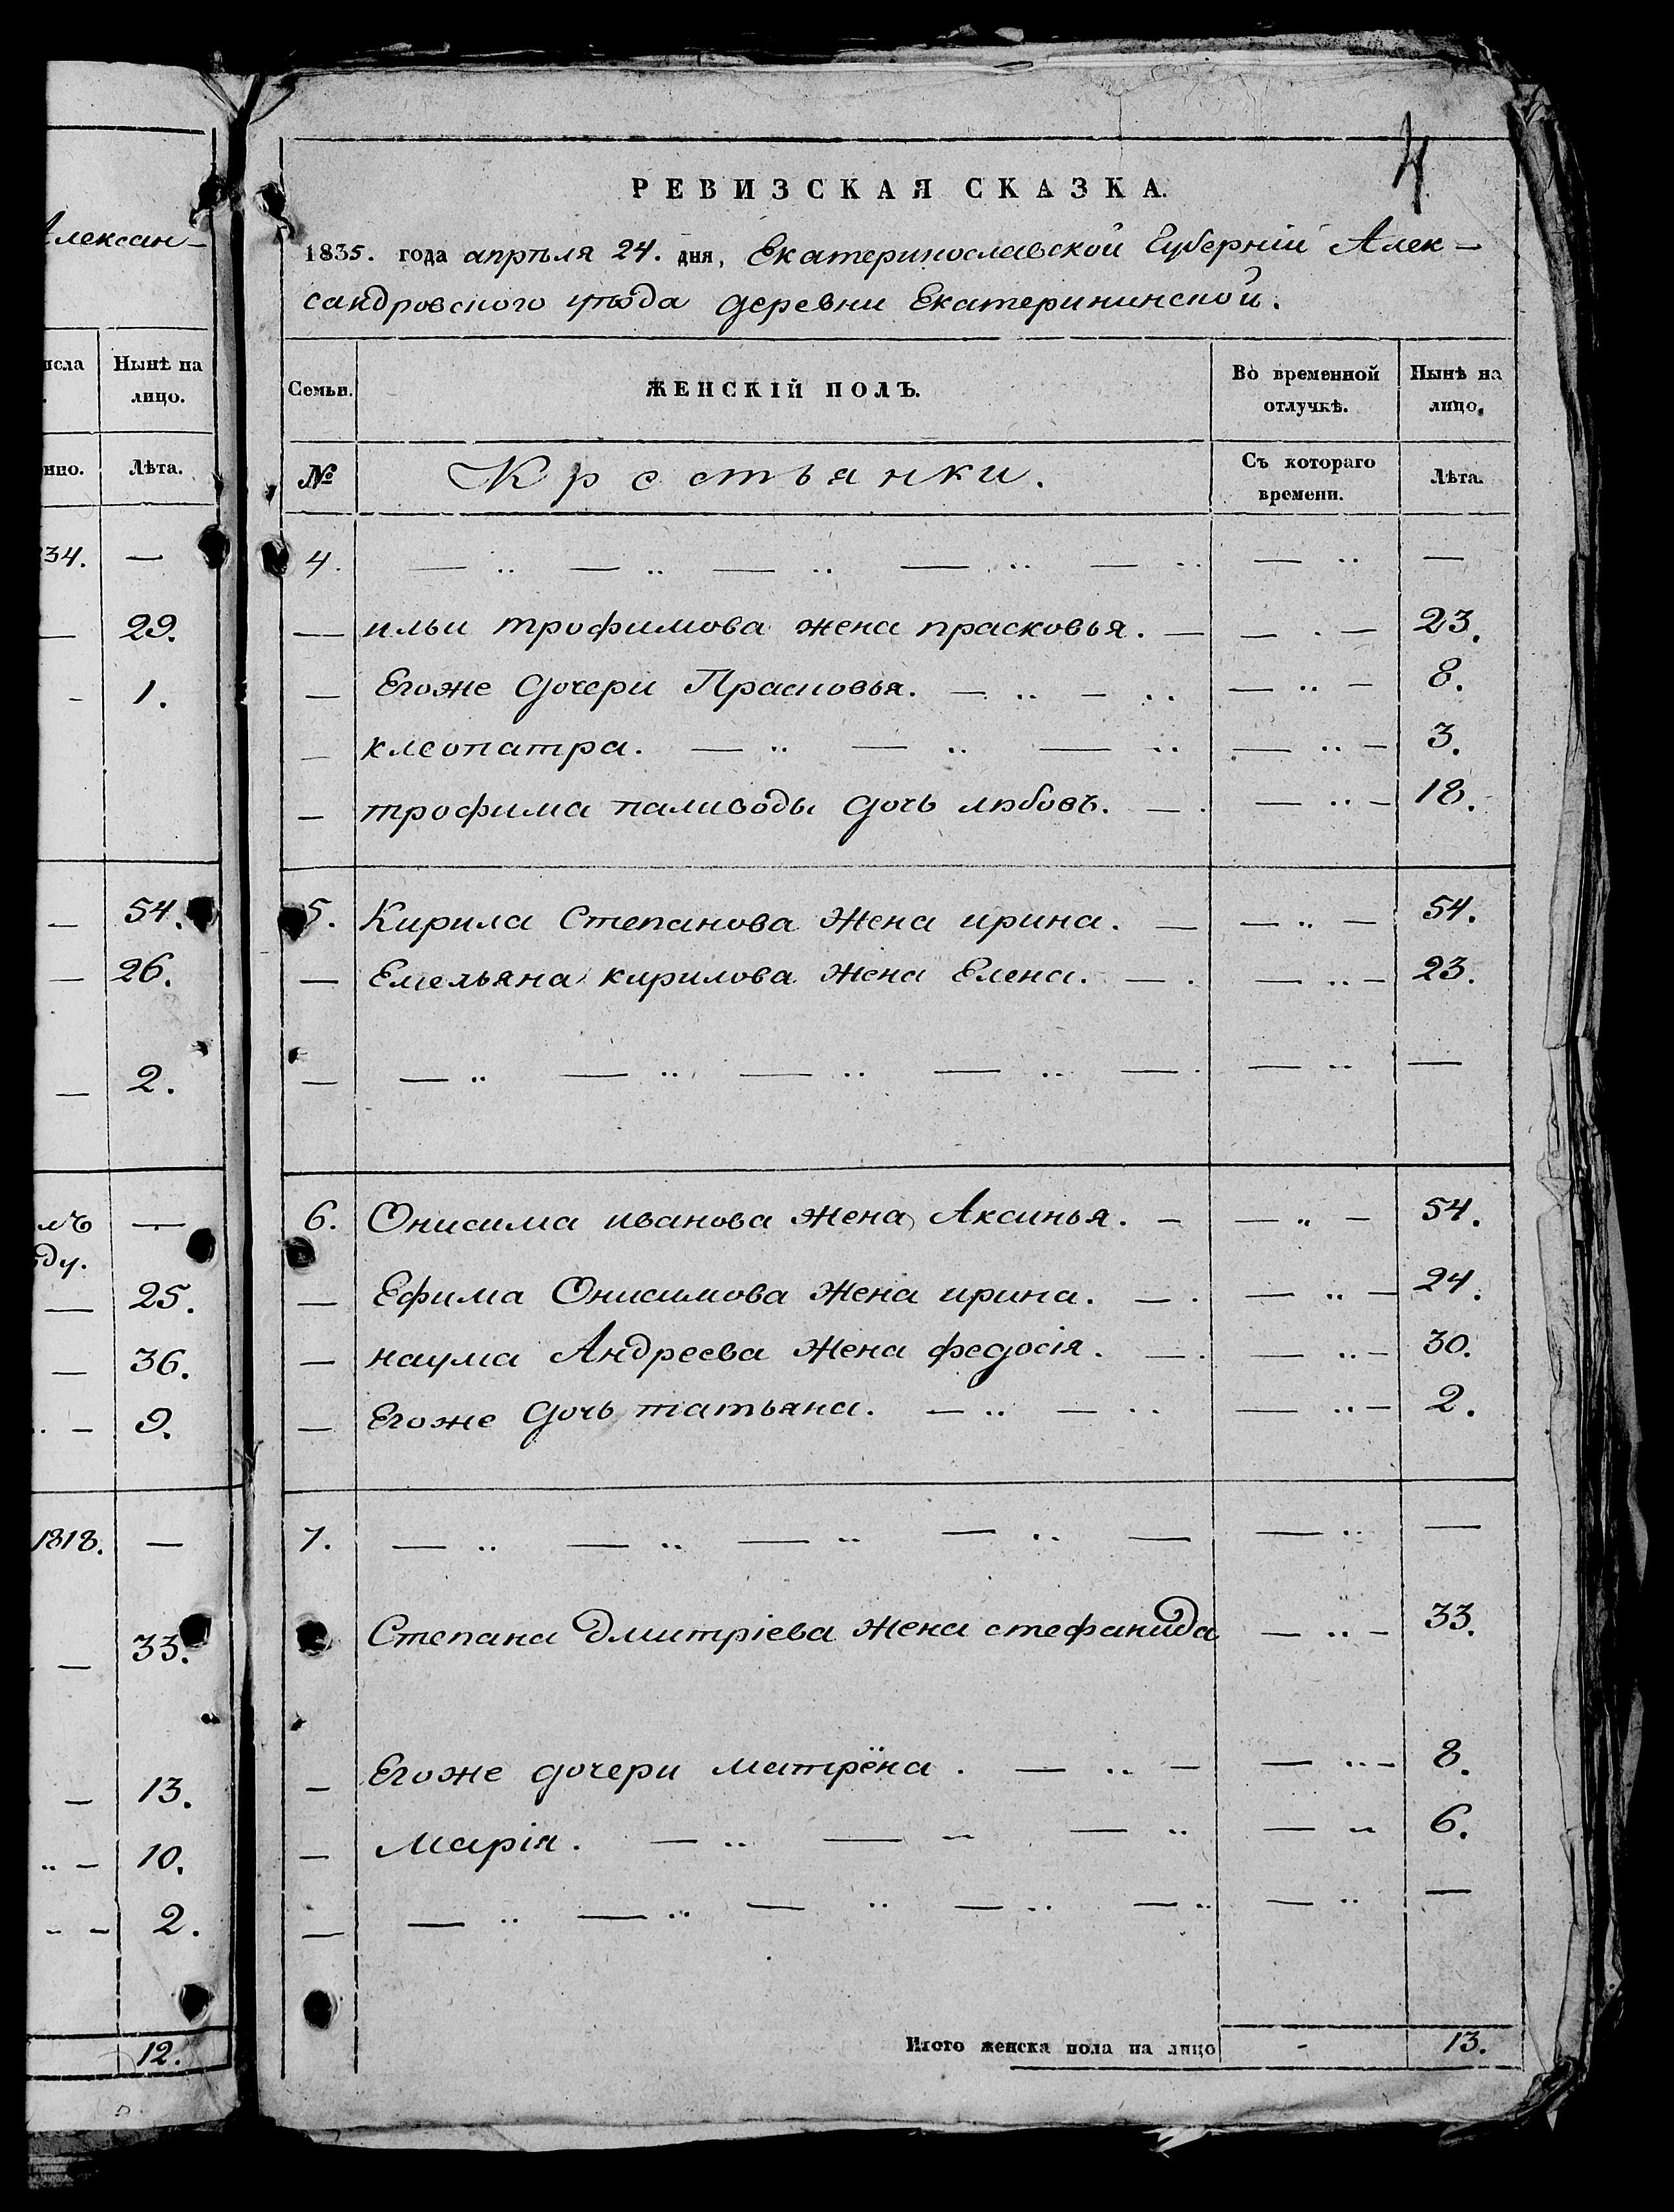 Алексан-
исла
Нынѣ на
лицо.
нно.
Лѣта.
34. —
— 29.
- 1.
— 54.
— 26.
— 2.
лъ —
ду.
— 25.
— 36.
.. — 9.
1818. —
— 33.
— 13.
.. — 10.
.. — 2.
12.
4
РЕВИЗСКАЯ СКАЗКА.
1835. года апрѣля 24. дня, Екатеринославской Губерніи Алек-
сандровского уѣзда деревни Екатерининской.
Семьи. ЖЕНСКІЙ ПОЛЪ. Во временной Нынѣ на
отлучкѣ. лицо.
№ Крестьянки. Съ котораго Лѣта.
времени.
4. — .. — .. — .. — .. — .. — .. —
— ильи трофимова жена прасковья. — — . — 23.
— Егоже дочери Прасковья. — .. — .. — .. — 8.
— клеопатра. — .. — .. — .. — .. — 3.
— трофима паливоды дочь любовь. — . — .. — 18.
5. Кирила Степанова жена ирина. — — .. — 54.
— Емельяна кирилова жена Елена. — . — .. — 23.
— — .. — .. — .. — .. — . — .. —
6. Онисима иванова жена Аксинья. — — .. — 54.
— Ефима Онисимова жена ирина. — . — .. — 24.
— наума Андреева жена федосія. — . — .. — 30.
— Егоже дочь татьяна. — .. — .. — .. — 2.
7. — .. — .. — .. — .. — — .. —
Степана дмитріева жена стефанида — .. — 33.
— Егоже дочери матрёна. — .. — — .. — 8.
— марія. — .. — .. — .. — .. 6.
— — .. — .. — .. — .. — .. — .. —
Итого женска пола на лицо - 13.